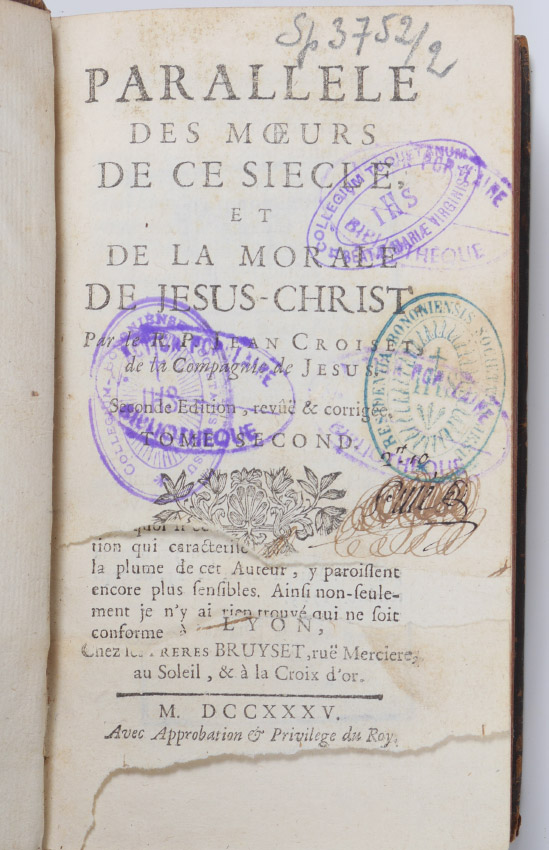 Sp 3752/2
PARALLELE
DES MŒURS
DE CE SIECLE,
ET
DE LA MORALE
DE JESUS-CHRIST
Par le R. P. JEAN CROISET
de la Compagnie de JESUS.
Seconde Edition, revûë & corrigée.
TOME SECOND.
tion qui caracterise
la plume de cet Auteur, y paroissent
encore plus sensibles. Ainsi non-seule-
ment je n'y ai rien trouvé qui ne soit
conforme à
LYON,
Chez les FRERES BRUYSET, ruë Merciere,
au Soleil, & à la Croix d'or.
M. DCCXXXV.
Avec Approbation & Privilege du Roy.
COLLEGIUM
BEATÆ MARIÆ VIRGINIS
IHS
BIBLIOTHEQUE
POPULAIRE
COLLEGIUM
IHS
BIBLIOTHEQUE
RESIDENTIA
BIBLIOTHEQUE